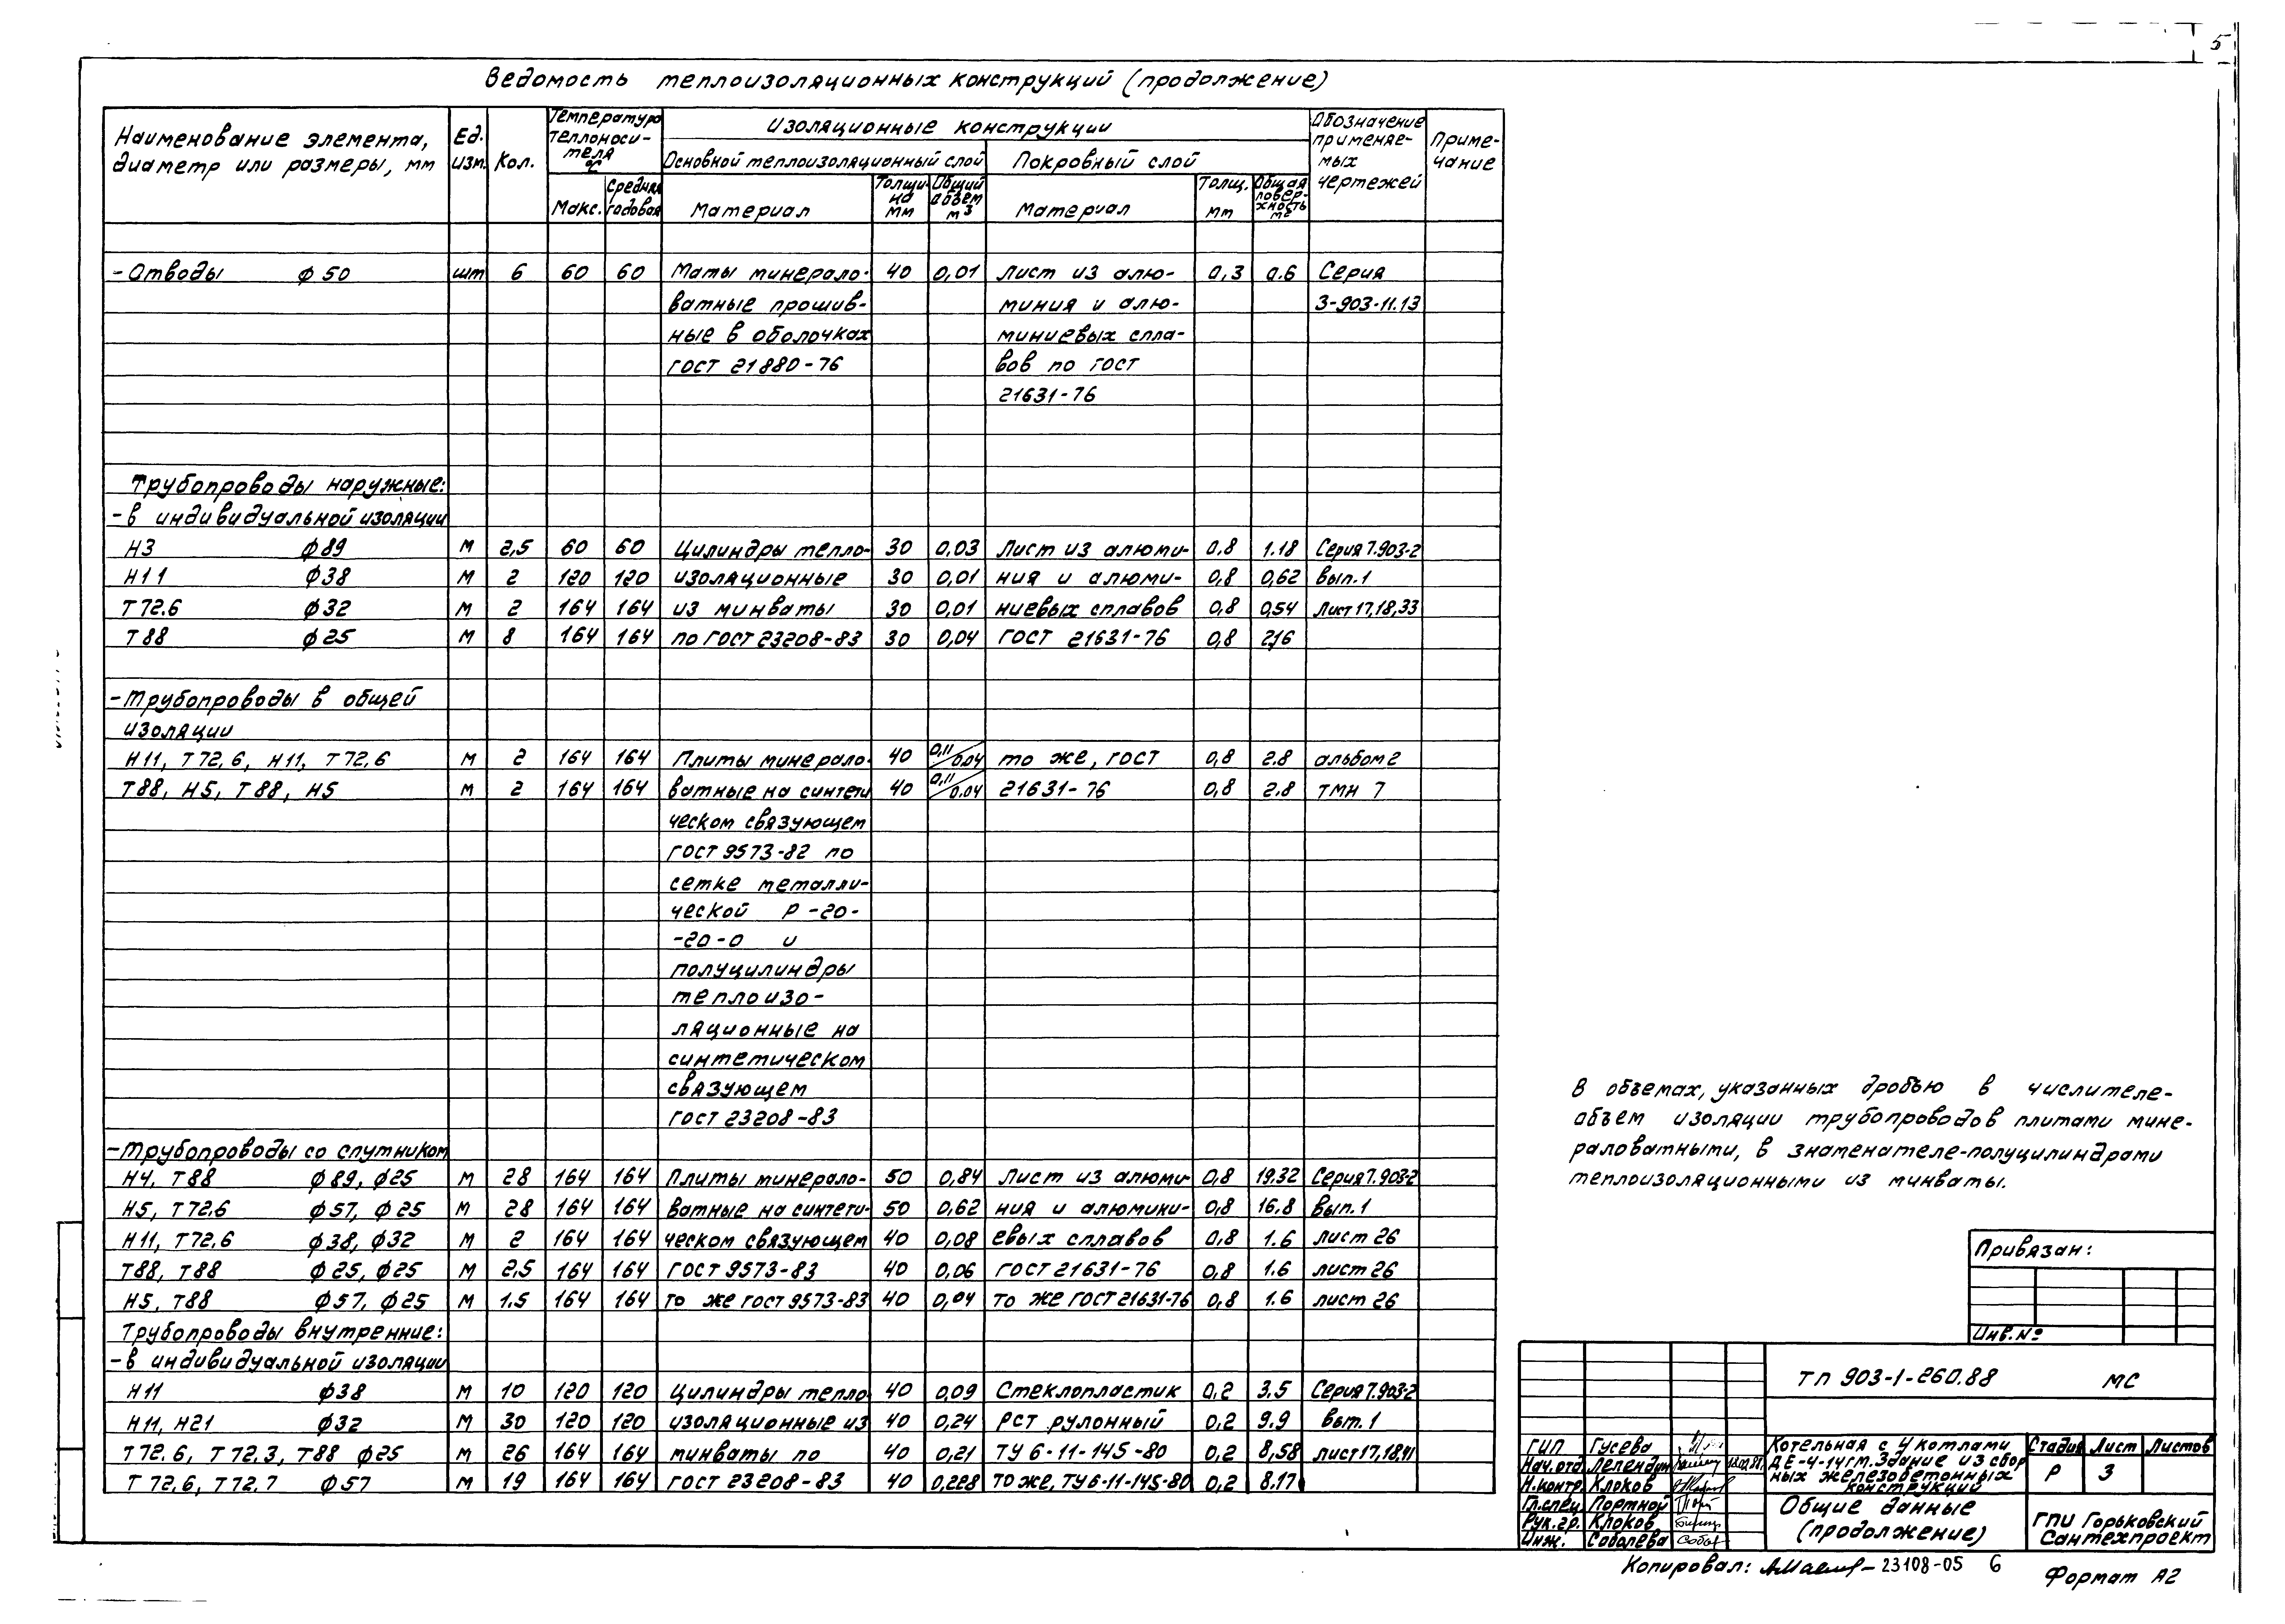 5
Ведомость теплоизоляционных конструкций (продолжение)
Наименование элемента, диаметр или размеры, мм
Ед. изм.
Кол.
Температура теплоноси-теля °С
Макс.
Средняя годовая
Изоляционные конструкции
Основной теплоизоляционный слой
Покровный слой
Материал
Толщи-на мм
Общий объем м3
Материал
Толщ. мм
Общая повер-хность м2
Обозначение применяе-мых чертежей
Приме-чание
-Отводы ф50 шт 6 60 60 Маты минерало- 40 0,01 Лист из алю- 0,3 0.6 Серия
ватные прошив- миния и алю- 3-903-11.13
ные в оболочках миниевых спла-
ГОСТ 21880-76 вов по ГОСТ
21631-76
Трубопроводы наружные:
-в индивидуальной изоляции
Н3 ф89 м 2,5 60 60 Цилиндры тепло- 30 0,03 Лист из алюми- 0,8 1.18 Серия 7.903-2
Н11 ф38 м 2 120 120 изоляционные 30 0,01 ния и алюми- 0,8 0,62 вып.1
Т72.6 ф32 м 2 164 164 из минваты 30 0,01 ниевых сплавов 0,8 0,54 Лист 17,18,33
Т88 ф25 м 8 164 164 по ГОСТ 23208-83 30 0,04 ГОСТ 21631-76 0,8 2,16
-Трубопроводы в общей
изоляции
Н11, Т72.6, Н11, Т72.6 м 2 164 164 Плиты минерало- 40 0,11/0,04 то же, ГОСТ 0,8 2.8 альбом 2
Т88, Н5, Т88, Н5 м 2 164 164 ватные на синтети 40 0,11/0.04 21631-76 0,8 2.8 ТМН 7
ческом связующем
ГОСТ 9573-82 по
сетке металли-
ческой Р-20-
-20-0 и
полуцилиндры
теплоизо-
ляционные на
синтетическом
связующем
ГОСТ 23208-83
-Трубопроводы со спутником
Н4, Т88 ф89, ф25 м 28 164 164 Плиты минерало- 50 0,84 Лист из алюми- 0,8 19.32 Серия 7.903-2
Н5, Т72.6 ф57, ф25 м 28 164 164 ватные на синтети- 50 0,62 ния и алюмини- 0,8 16.8 Вып.1
Н11, Т72.6 ф38, ф32 м 2 164 164 ческом связующем 40 0,08 евых сплавов 0,8 1.6 лист 26
Т88, Т88 ф25, ф25 м 2,5 164 164 ГОСТ 9573-83 40 0,06 ГОСТ 21631-76 0,8 1.6 лист 26
Н5, Т88 ф57, ф25 м 1.5 164 164 То же ГОСТ 9573-83 40 0,04 То же ГОСТ 21631-76 0,8 1.6 лист 26
Трубопроводы внутренние:
-в индивидуальной изоляции
Н11 ф38 м 10 120 120 Цилиндры тепло 40 0,09 Стеклопластик 0,2 3.5 Серия 7.903-2
Н11, Н21 ф32 м 30 120 120 изоляционные из 40 0,24 РСТ рулонный 0,2 9.9 Вып.1
Т72.6, Т72.3, Т88 ф25 м 26 164 164 минваты по 40 0,21 ТУ 6-11-145-80 0,2 8,58 лист 17,18,
Т72.6, Т72.7 ф57 м 19 164 164 ГОСТ 23208-83 40 0,228 То же, ТУ6-11-145-80 0,2 8.17
В объемах, указанных дробью в числителе-
объем изоляции трубопроводов плитами мине-
раловатными, в знаменателе-полуцилиндрами
теплоизоляционными из минваты.
Привязан:
Инв.№
ТП 903-1-260.88 МС
ГИП Гусева
Нач.отд Лелендин
Н.контр. Клоков
Гл.спец. Портной
Рук.гр. Клоков
Инж. Соболева
Котельная с 4 котлами
ДЕ-4-14гм. Здание из сбор
ных железобетонных
конструкций
Стадия Лист Листов
Р 3
Общие данные
(продолжение)
ГПИ Горьковский
Сантехпроект
Копировал: 23108-05 6
Формат А2